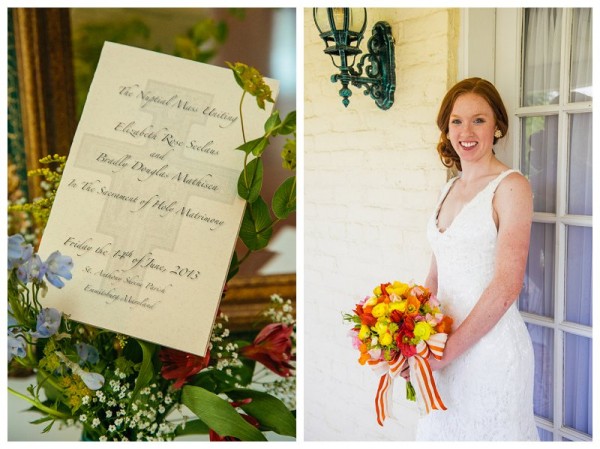 The Nuptial Mass Uniting
Elizabeth Rose Seelaus
and
Bradly Douglas Mathisen
In The Sacrament of Holy Matrimony
Friday the 14th of June, 2013
St. Anthony Shrine Parish
Emmitsburg Maryland